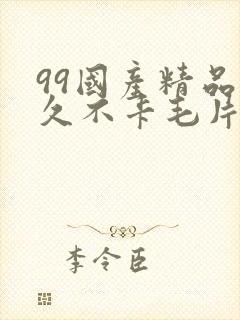 99國產精品
久不卡毛片
李令臣